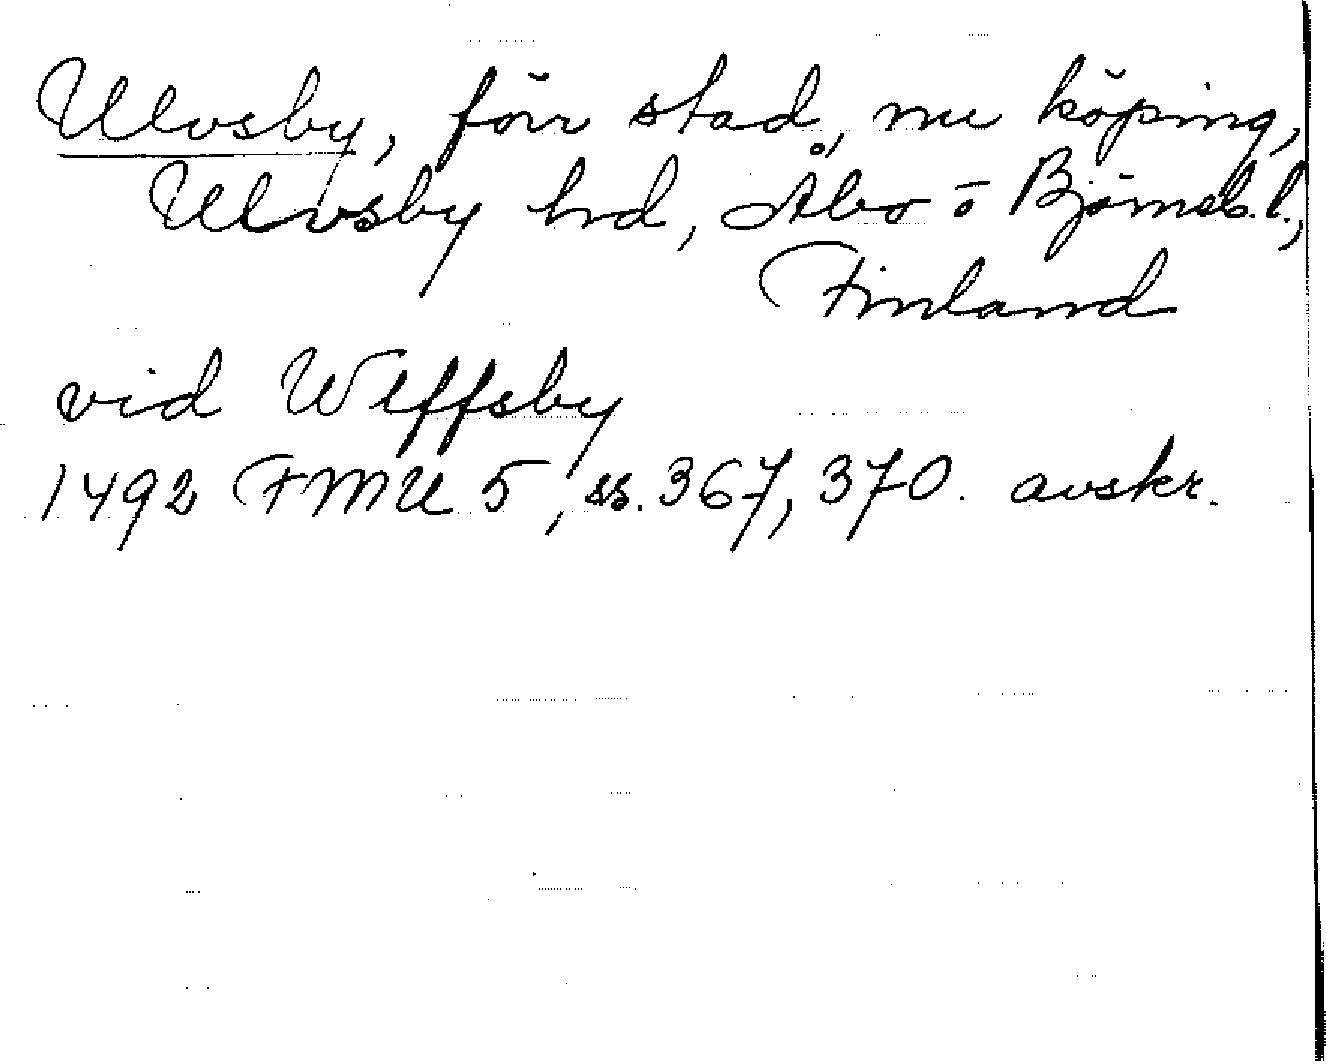 Ulvsby, förr stad, nu köping,
Ulvsby hd, Åbo o Björneb. l.,
Finland
vid Wlffsby
1492 FMU 5, ss. 367, 370. avskr.